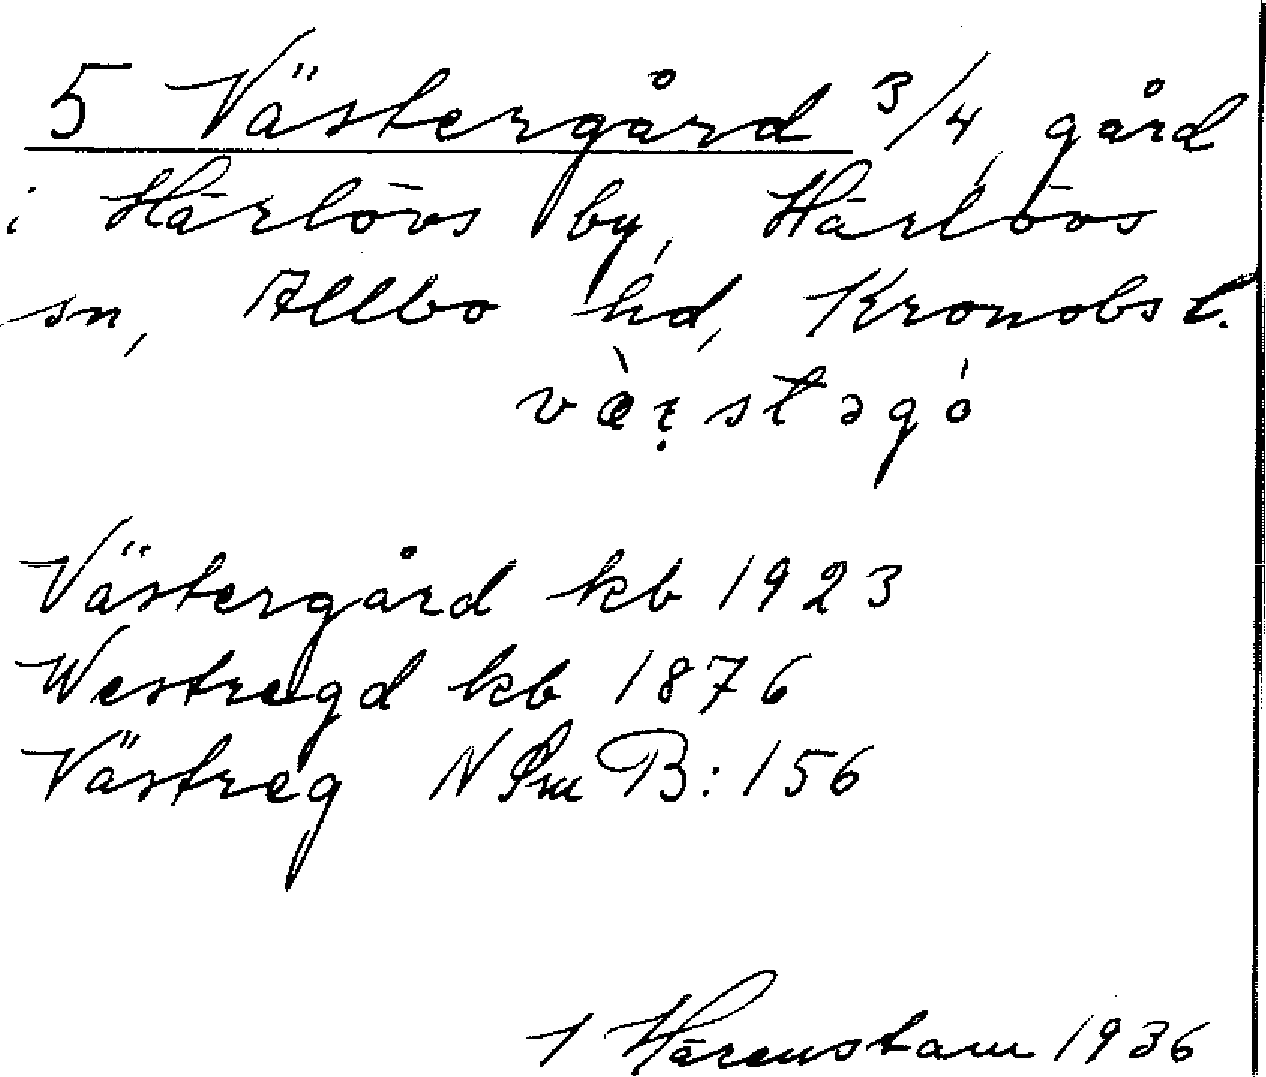 5 Västergård 3/4 gård
i Härlövs by, Härlövs
sn, Allbo hd, Kronobs l.
Västergård kb 1923
Westregd kb 1876
Västreg N B:156
1 Härenstam 1936